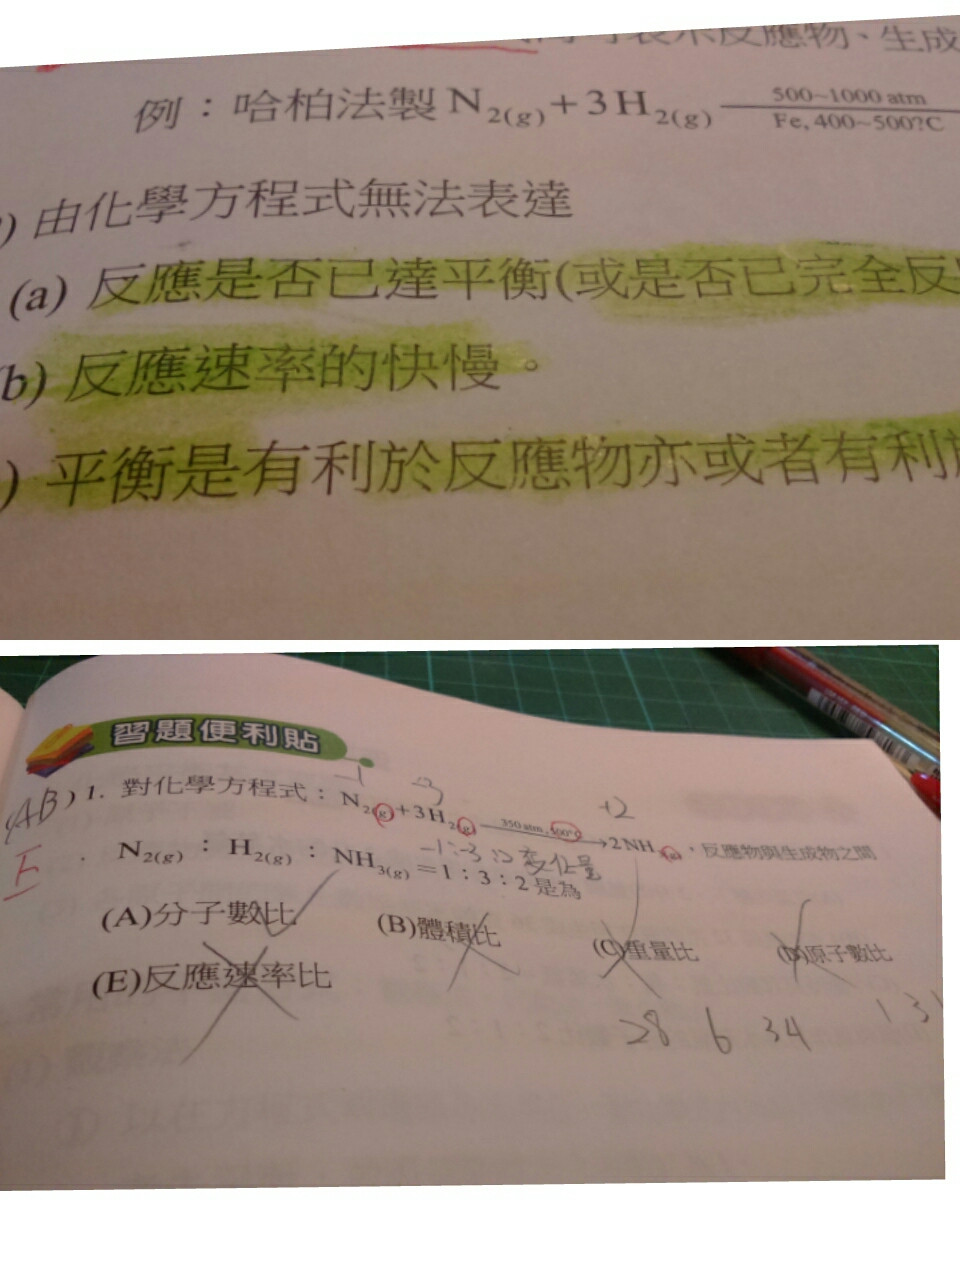 表示反應物、生成
例：哈柏法製 N2(g)+3H2(g) 500~1000 atm
Fe, 400~500?C
) 由化學方程式無法表達
(a) 反應是否已達平衡(或是否已完全反
b) 反應速率的快慢。
) 平衡是有利於反應物亦或者有利
習題便利貼
-1 -3 +2
(AB ) 1. 對化學方程式：N2(g)+3H2(g) 350 atm, 500°C → 2NH3(g)，反應物與生成物之間
E
-1:-3:2 变化量
N2(g)：H2(g)：NH3(g)＝1：3：2 是為
(A)分子數比 (B)體積比 (C)重量比 (D)原子數比
(E)反應速率比
28 6 34 1 3